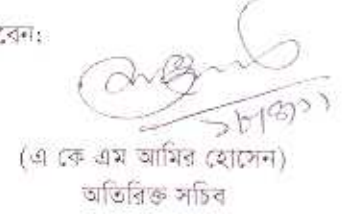 বেন:
(এ কে এম আমির হোসেন)
অতিরিক্ত সচিব